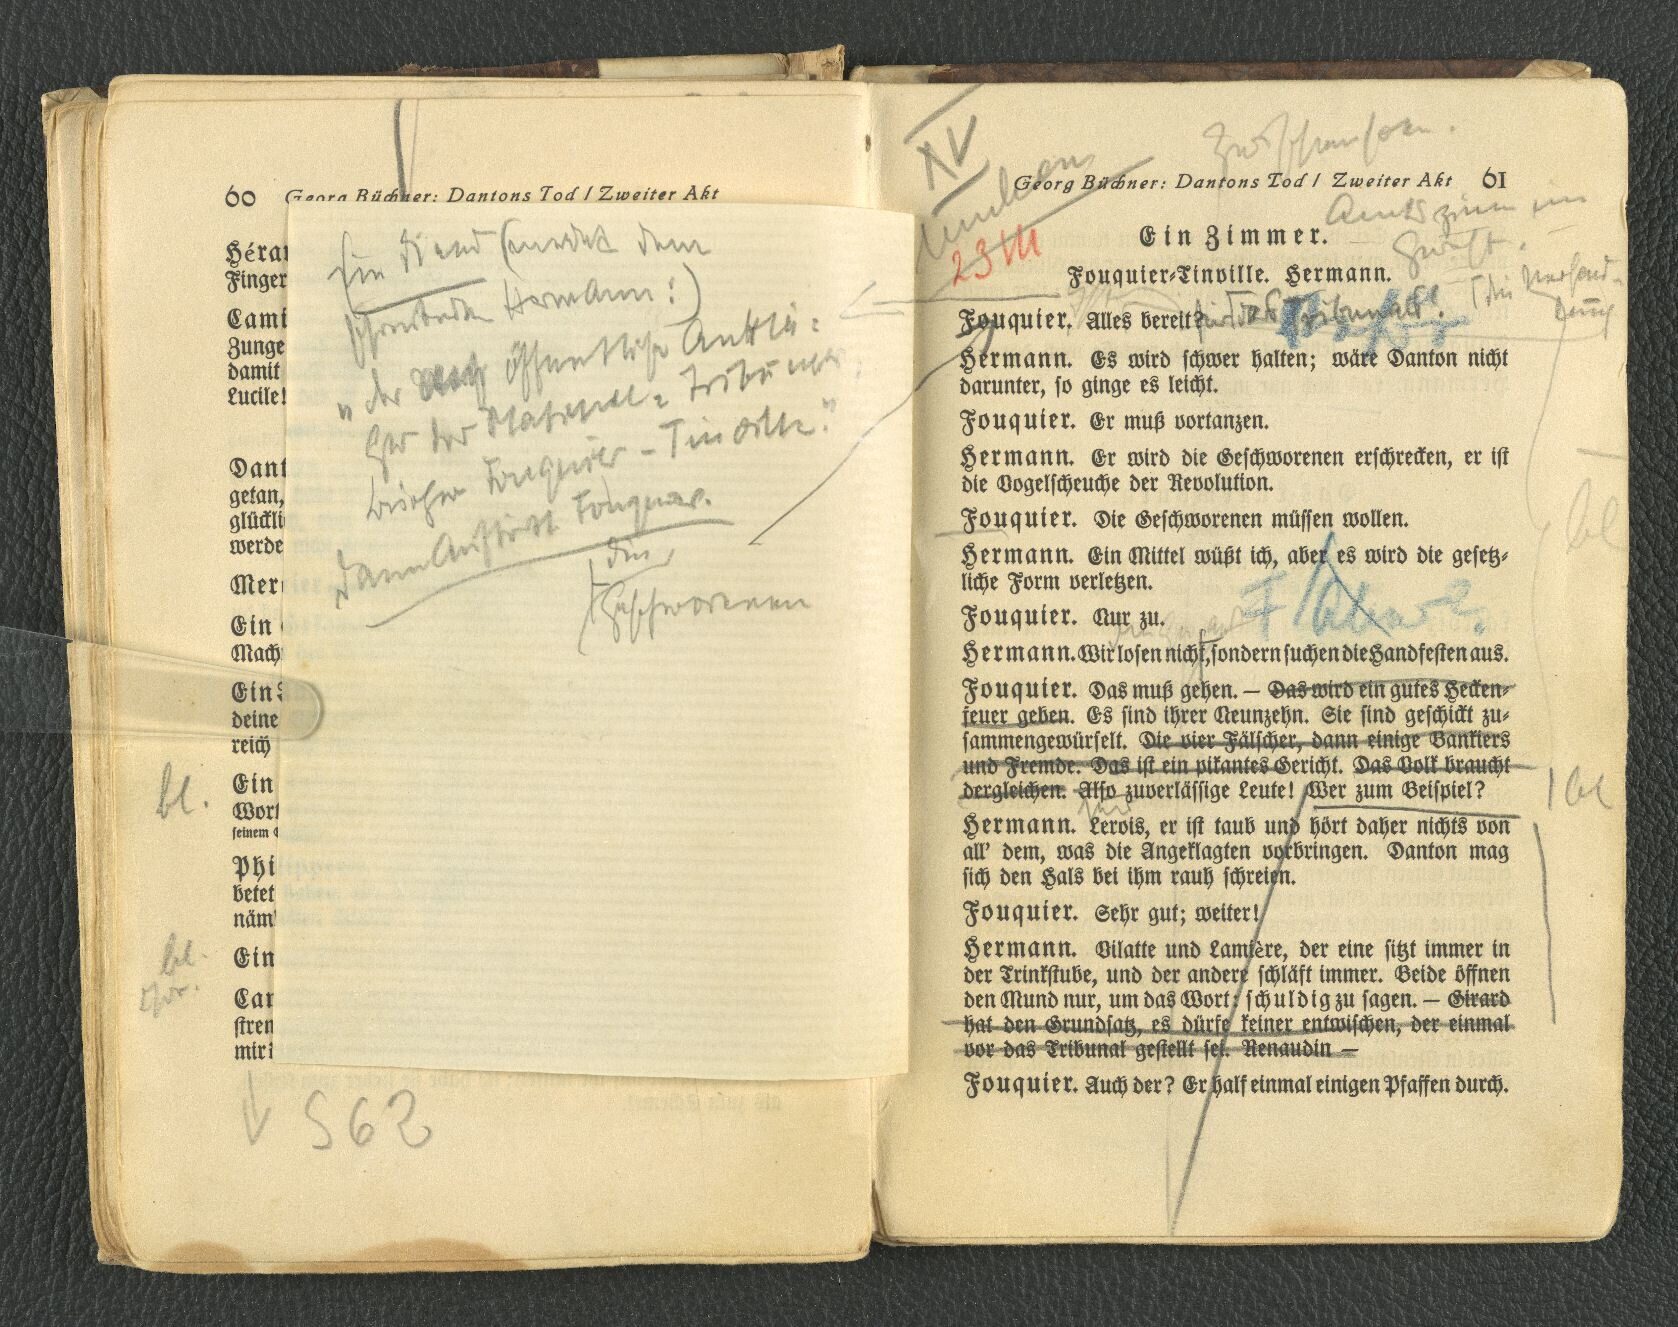 60 Georg Büchner: Dantons Tod / Zweiter Akt
Héra
Finger
Cami
Zunge
damit
Lucile!
Dant
getan,
glückli
werde
Mer
Ein
Mach
Ein
deine
reich
Ein
Wort
seinem
Phi
betet
näm
Ein
Cam
stren
mir
bl.
bl.
Ein Diener (meldet dem
schreibenden Hermann:)
"der öffentliche Anklä-
ger der National-Tribunals,
Bürger Fouquier-Tinville."
dann Auftritt Fouquier.
die
Geschworenen
S 62
XV
23 VII
Georg Büchner: Dantons Tod / Zweiter Akt 61
Amtszimmer im
Ein Zimmer.
Fouquier-Tinville. Hermann.
Fouquier. Alles bereit? für das Tribunal!
Hermann. Es wird schwer halten; wäre Danton nicht
darunter, so ginge es leicht.
Fouquier. Er muß vortanzen.
Hermann. Er wird die Geschworenen erschrecken, er ist
die Vogelscheuche der Revolution.
Fouquier. Die Geschworenen müssen wollen.
Hermann. Ein Mittel wüßt ich, aber es wird die gesetz-
liche Form verletzen.
Fouquier. Nur zu.
Hermann. Wir losen nicht, sondern suchen die Handfesten aus.
Fouquier. Das muß gehen. — Das wird ein gutes Hecken-
feuer geben. Es sind ihrer Neunzehn. Sie sind geschickt zu-
sammengewürfelt. Die vier Fälscher, dann einige Bankiers
und Fremde. Das ist ein pikantes Gericht. Das Volk braucht
dergleichen. Also zuverlässige Leute! Wer zum Beispiel?
Hermann. Lerois, er ist taub und hört daher nichts von
all' dem, was die Angeklagten vorbringen. Danton mag
sich den Hals bei ihm rauh schreien.
Fouquier. Sehr gut; weiter!
Hermann. Vilatte und Lamière, der eine sitzt immer in
der Trinkstube, und der andere schläft immer. Beide öffnen
den Mund nur, um das Wort: schuldig zu sagen. — Girard
hat den Grundsatz, es dürfe keiner entwischen, der einmal
vor das Tribunal gestellt sei. Renaudin —
Fouquier. Auch der? Er half einmal einigen Pfaffen durch.
bl
bl